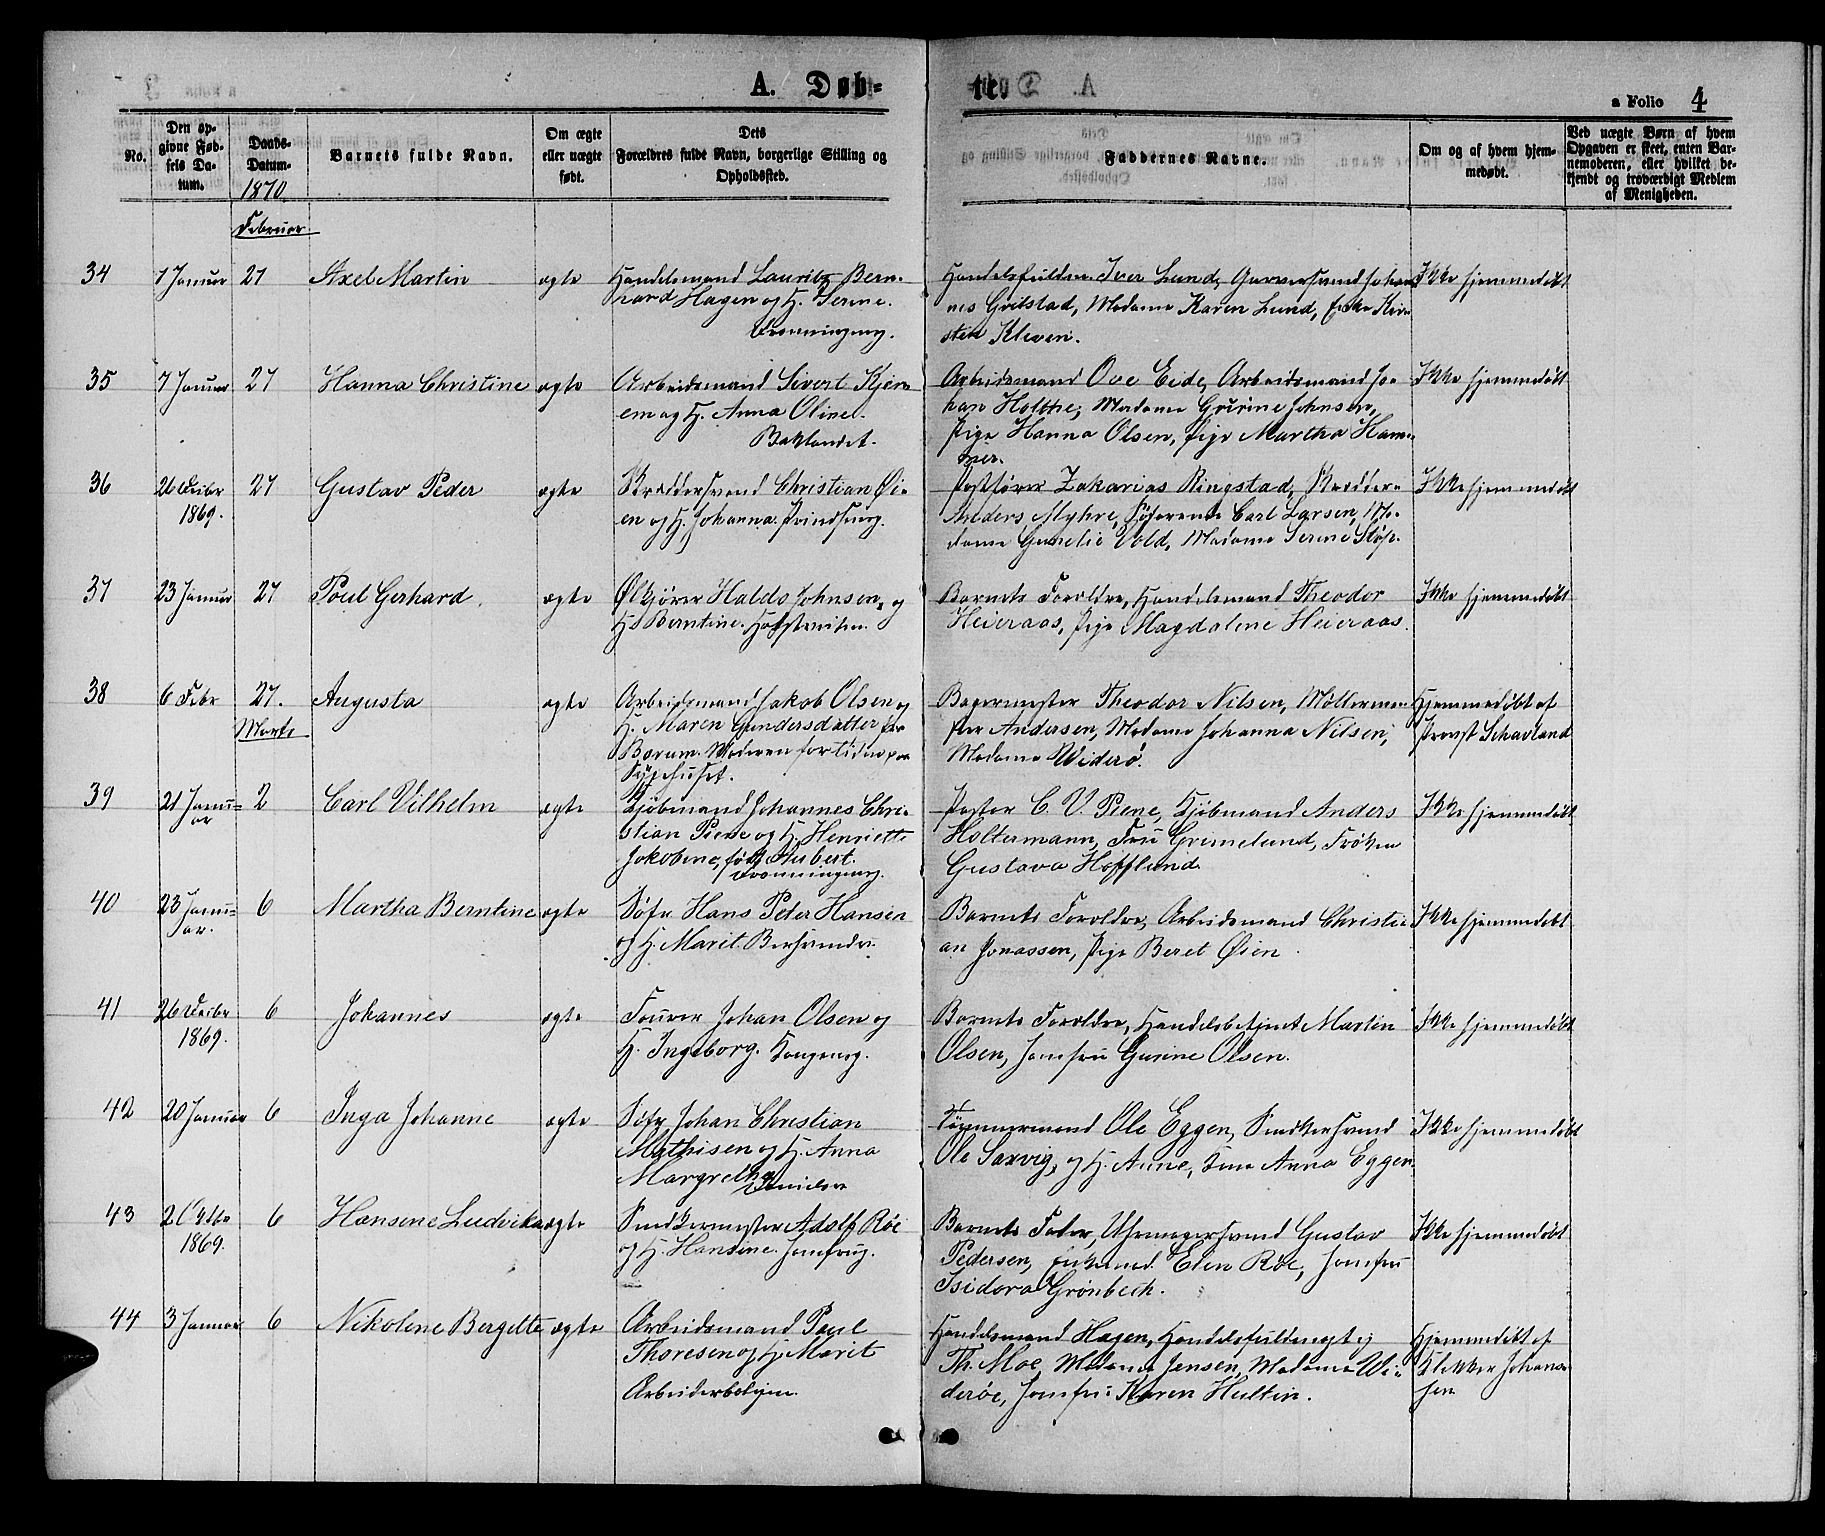 A. Døb=
te.
a Folio 4
No.
Den op-
givne Fød-
sels Da-
tum.
Daabs-
Datum.
1870.
Barnets fulde Navn.
Om ægte
eller uægte
født.
Dets
Forældres fulde Navn, borgerlige Stilling og
Opholdssted.
Faddernes Navne.
Om og af hvem hjem-
medøbt.
Ved uægte Børn af hvem
Opgaven er skeet, enten Bar-
nemoderen, eller hvilket be-
kjendt og troværdigt Medlem
af Menigheden.
Februar
34 7 Januar 27 Axel Martin ægte
Handelsmand Lauritz Bern-
hard Hagen og H. Serine.
Dronningensg.
Handelsfuldm. Iver Lund, Garversvend Johan-
nes Gridstad, Madame Karen Lund, Enke Kir-
sten Kleven.
Ikke hjemmedøbt
35 7 Januar 27 Hanna Christine ægte
Arbeidsmand Sivert Kjen-
em og H. Anna Oline.
Baklandet.
Arbeidsmand Ove Eide, Arbeidsmand Jo-
han Holthe, Madame Gurine Johnsen,
Pige Hanna Olsen, Pige Martha Ham-
mer.
Ikke hjemmedøbt
36 26 Decbr 27 Gustav Peder ægte
1869.
Skræddersvend Christian Øi-
en og H. Johanna. Prindsensg.
Postfører Zakarias Ringstad, Skrædder
Anders Myhre, Søfarende Carl Larsen, Ma-
dame Gunelie Vold, Madame Serine Støp.
Ikke hjemmedøbt
37 23 Januar 27 Poul Gerhard. ægte
Ølkjører Halds Johnsen, og
H. Berntine.
Barnets Forældre, Handelsmand Theodor
Heieraas, Pige Magdalene Heieraas.
Ikke hjemmedøbt
38 6 Febr 27. Augusta ægte
Arbeidsmand Jakob Olsen og
H. Maren Gundersdatter fra
Bærum. Moderen for tiden paa
Sygehuset.
Bagermester Theodor Nilsen, Møllerme-
ster Andersen, Madame Johanna Nilsen,
Madame Widerø.
Hjemmedøbt af
Provst Schavland
Marts
39 21 Janu- 2 Carl Vilhelm ægte
ar
Kjøbmand Johannes Chri-
stian Piene og H. Henriette
Jakobine, født Hubert.
Dronningensg.
Pastor C. V. Piene, Kjøbmand Anders
Holtermann, Fru Grimelund, Frøken
Gustava Hofflund
Ikke hjemmedøbt
40 23 Janu- 6 Martha Berntine ægte
ar.
Søfr Hans Peder Hansen
og H. Marit.
Barnets Forældre, Arbeidsmand Christi-
an Jonassen, Pige Beret Øien.
Ikke hjemmedøbt
41 26 Decbr 6 Johannes ægte
1869.
Fourer Johan Olsen og
H. Ingeborg. Kongensg.
Barnets Forældre, Handelsbetjent Martin
Olsen, Jomfru Gurine Olsen.
Ikke hjemmedøbt
42 20 Januar 6 Inga Johanne ægte
Søfr Johan Christian
Mathisen og H. Anna
Margretha
Tømmermand Ole Eggen, Snedkersvend
Ole Saxvig, og H. Anne, Anna Eggen.
Ikke hjemmedøbt
43 2 Octbr 6 Hansine Ludvika ægte
1869.
Snedkermester Adolf Röe
og H. Hansine. Jomfrug.
Barnets Fader, Uhrmagersvend Gustav
Pedersen, Enkemad. Elen Röe, Jomfru
Isidora Grönbech.
Ikke hjemmedøbt
44 3 Januar 6 Nikoline Bergitte ægte
Arbeidsmand Paul
Thoresen og H. Marit
Arbeiderboligen.
Handelsmand Hagen, Handelsfuldmægtig
Th. Moe, Madame Jensen, Madame Wi-
deröe, Jomfru Karen Hultin.
Hjemmedøbt af
Klokker Johan-
sen